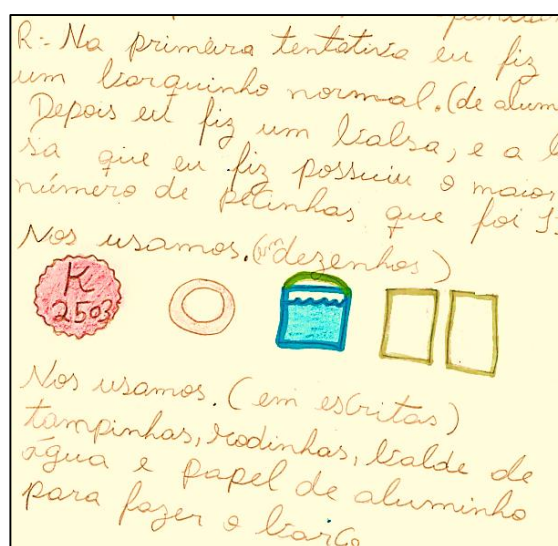 R:- Na primeira tentativa eu fiz
um barquinho normal. (de alum
Depois eu fiz um balsa, e a b
sa que eu fiz possuiu o maior
número de petinhas que foi
Nos usamos. (em dezenhos)
K
2503
Nos usamos. (em escritas)
tampinhas, rodinhas, balde de
água e papel de aluminho
para fazer o barco